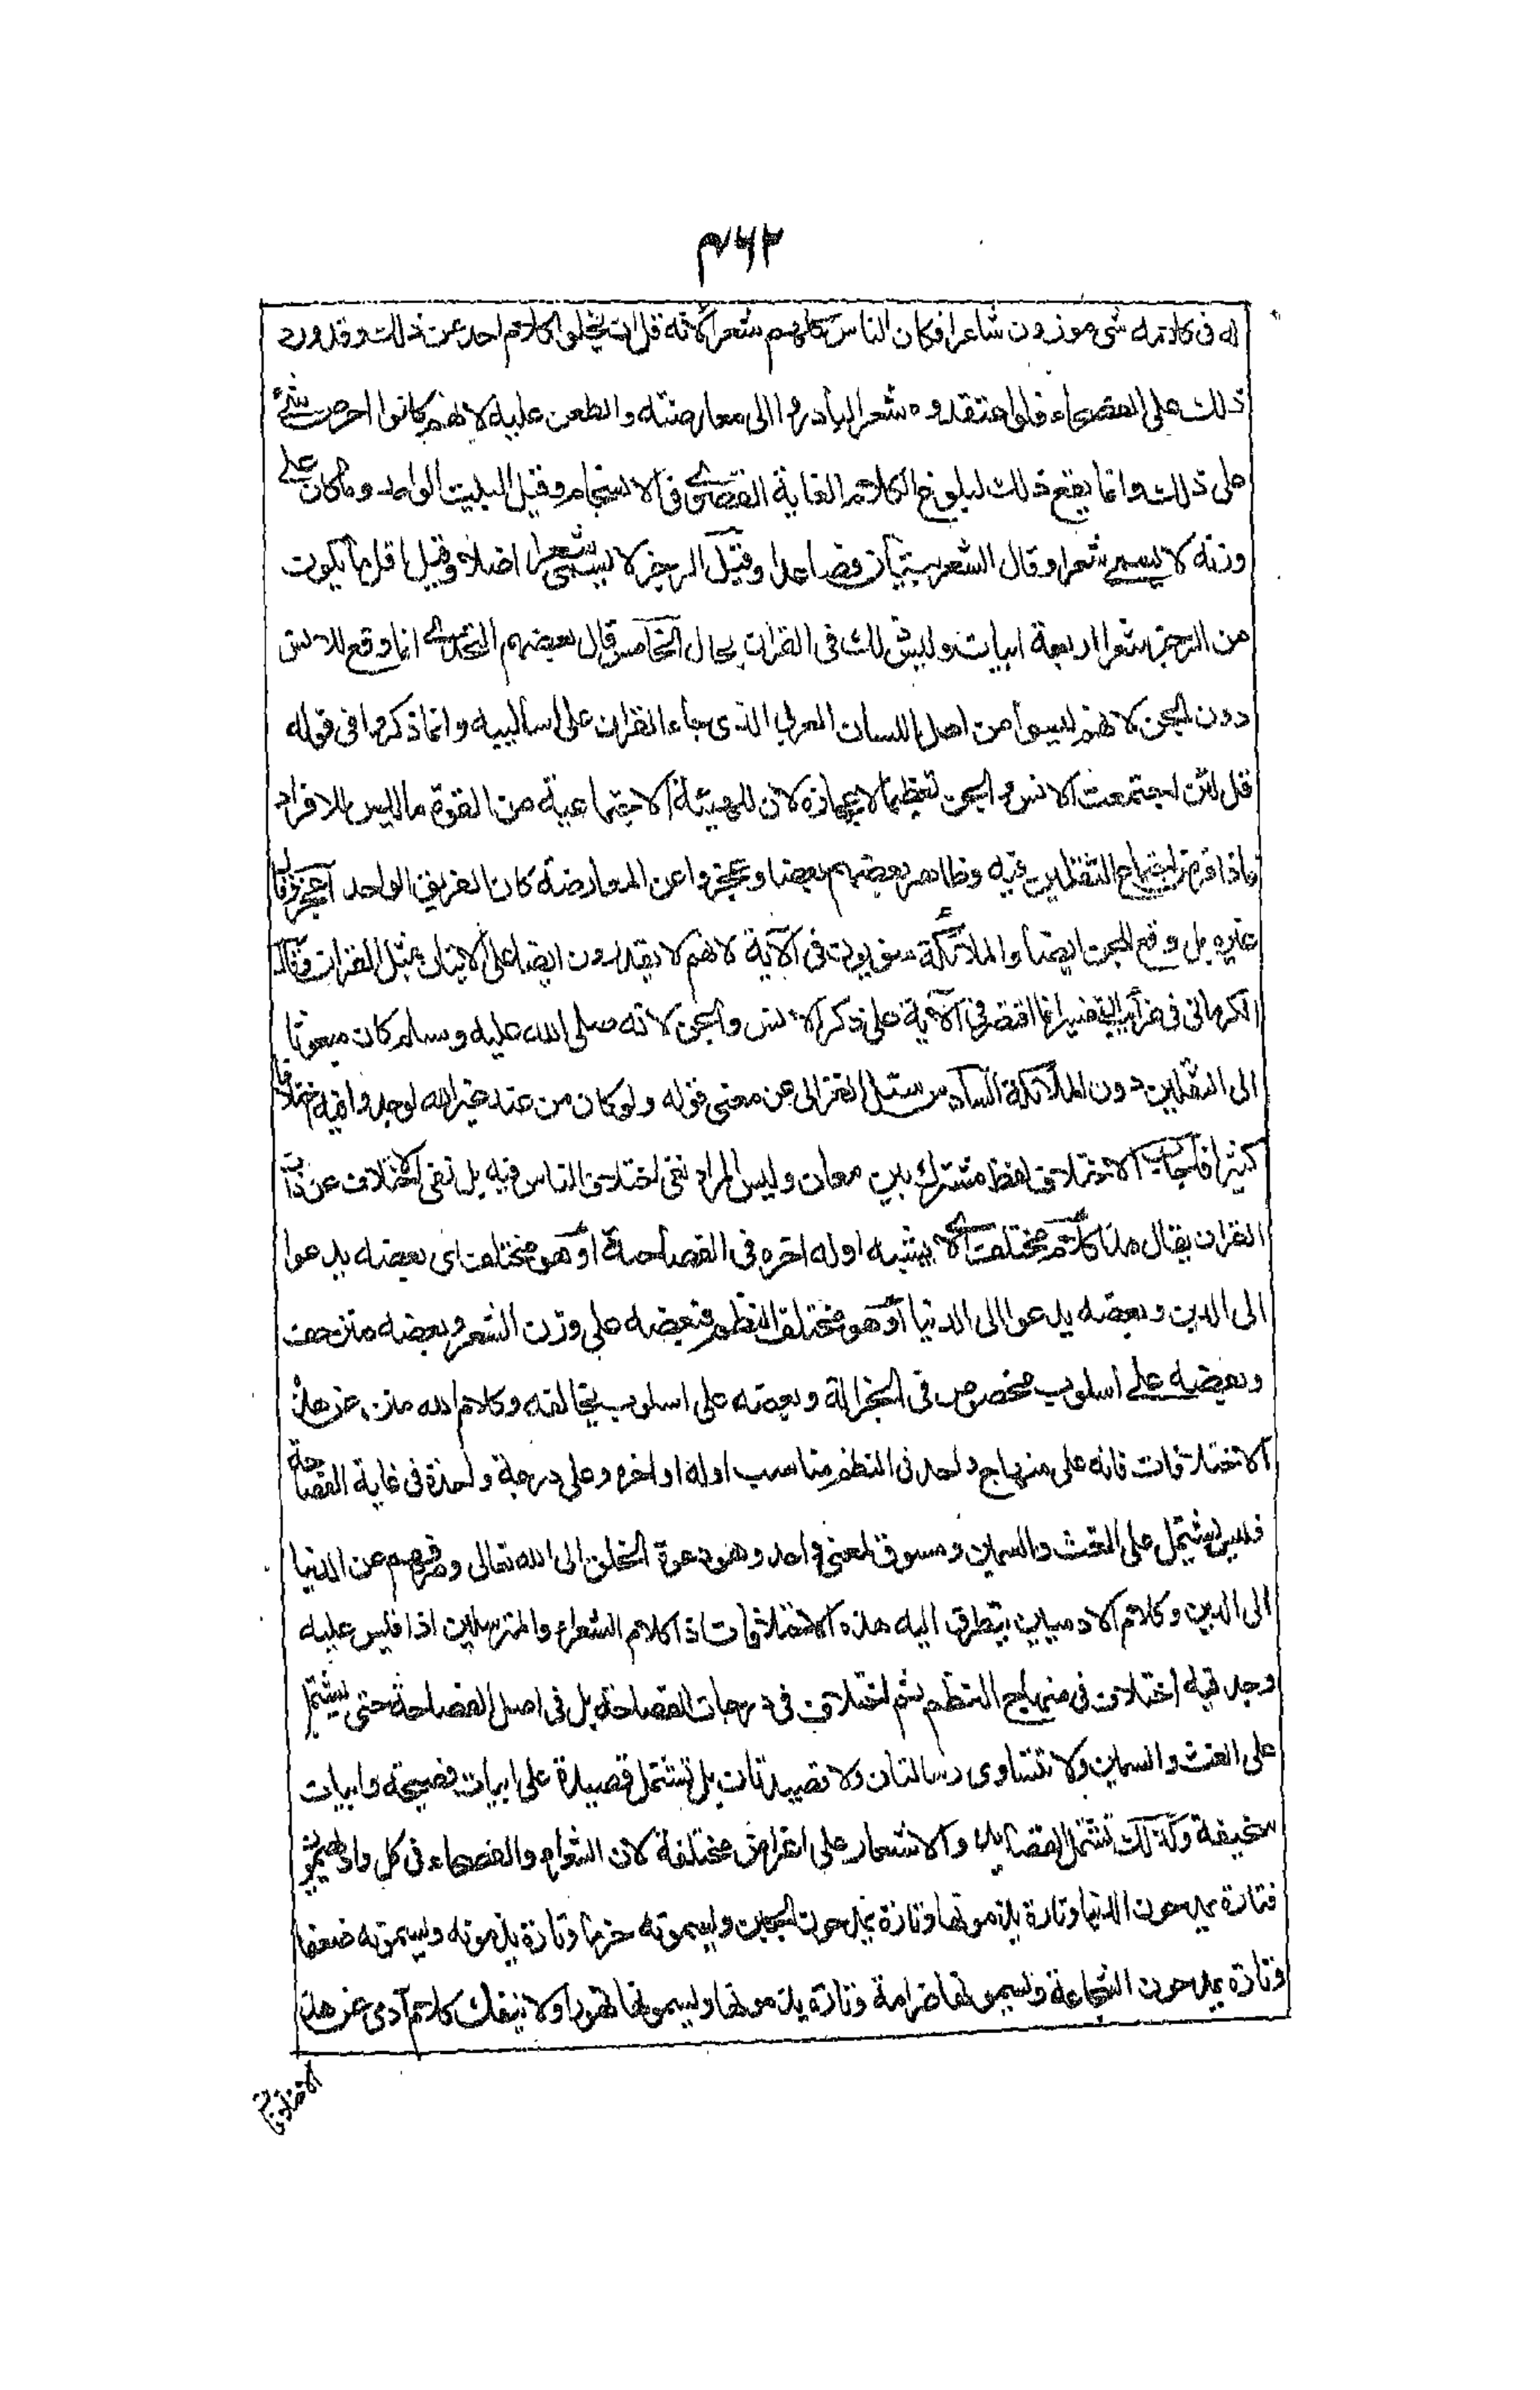 ٧٦٢
له فى كلامه شئ موزون شاعرا فكان الناس كلهم شعراء لانه قل ان يخلوا كلام احد عن ذلك وقد ورد
ذلك على الفصحاء فلو اعتقدوه شعرا لبادروا الى معارضته والطعن عليه لانهم كانوا احرص شئ
على ذلك وانما يقع ذلك لبلوغ الكلام الغاية القصوى فى الانسجام وقيل البيت الواحد وما كان على
وزنه لا يسمى شعرا وقال الشعر بيتان فصاعدا وقيل الرجز لا يسمى شعرا اصلا وقيل اقل ما يكون
من الرجز شعرا اربعة ابيات وليس ذلك فى القران بحال الخامس قال بعضهم التحدى انما وقع للانس
دون الجن لانهم ليسوا من اهل اللسان العربى الذى جاء القران على اساليبه وانما ذكروا فى قوله
قل لئن اجتمعت الانس و الجن تعظيما لاعجازه لان للهيئة الاجتماعية من القوة ما ليس للافراد
فاذا فرض اجتماع الثقلين فيه وظاهر بعضهم بعضا وعجزوا عن المعارضة كان الفريق الواحد اعجز وقال
غيره بل وقع للجن ايضا والملائكة منويون فى الآية لانهم لا يقدرون ايضا على الاتيان بمثل القران وقال
الكرمانى فى غرائب التفسير انما اقتصر فى الآية على ذكر الانس والجن لانه صلى الله عليه وسلم كان مبعوثا
الى الثقلين دون الملائكة السادس سئل الغزالى عن معنى قوله ولو كان من عند غير الله لوجدوا فيه اختلافا
كثيرا فاجاب الاختلاف لفظ مشترك بين معان وليس المراد نفى اختلاف الناس فيه بل نفى الاختلاف عن ذات
القران يقال هذا كلام مختلف اى لا يشبه اوله اخره فى الفصاحة او هو مختلف اى بعضه يدعوا
الى الدين وبعضه يدعوا الى الدنيا او هو مختلف النظم فبعضه على وزن الشعر وبعضه منزحف
وبعضه على اسلوب مخصوص فى الجزالة وبعضه على اسلوب يخالفه وكلام الله منزه عن هذه
الاختلافات فانه على منهاج واحد فى النظم مناسب اوله اواخره وعلى درجة واحدة فى غاية الفصاحة
فليس يشتمل على الغث والسمين ومسوق لمعنى واحد وهو دعوة الخلق الى الله تعالى وصرفهم عن الدنيا
الى الدين وكلام الادميين يتطرق اليه هذه الاختلافات اذ كلام الشعراء والمترسلين اذا قيس عليه
وجد فيه اختلاف فى منهاج النظم ثم اختلاف فى درجات الفصاحة بل فى اصل الفصاحة حتى يشتمل
على الغث والسمين ولا تتساوى رسالتان ولا قصيدتان بل تشتمل قصيدة على ابيات فصيحة وابيات
سخيفة وكذلك تشتمل القصايد والاشعار على اغراض مختلفة لان الشعراء والفصحاء فى كل واد يهيمون
فتارة يمدحون الدنيا وتارة يذمونها وتارة يمدحون الجبن ويسمونه حزما وتارة يذمونه ويسمونه ضعفا
وتارة يمدحون الشجاعة ويسمونها صرامة وتارة يذمونها ويسمونها تهورا ولا ينفك كلام آدمى عن هذه
الاختلافات